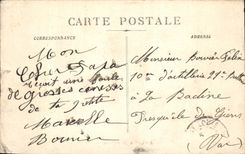 CARTE POSTALE
CORRESPONDANCE
ADRESSE
Mon
Cher Papa
Reçoit une foule
de grosses caresses
de ta petite
Marcelle
Bouvier
Monsieur Bouvier
10me d'artillerie 21e
à La Badine
Presqu'île de Giens
(Var)